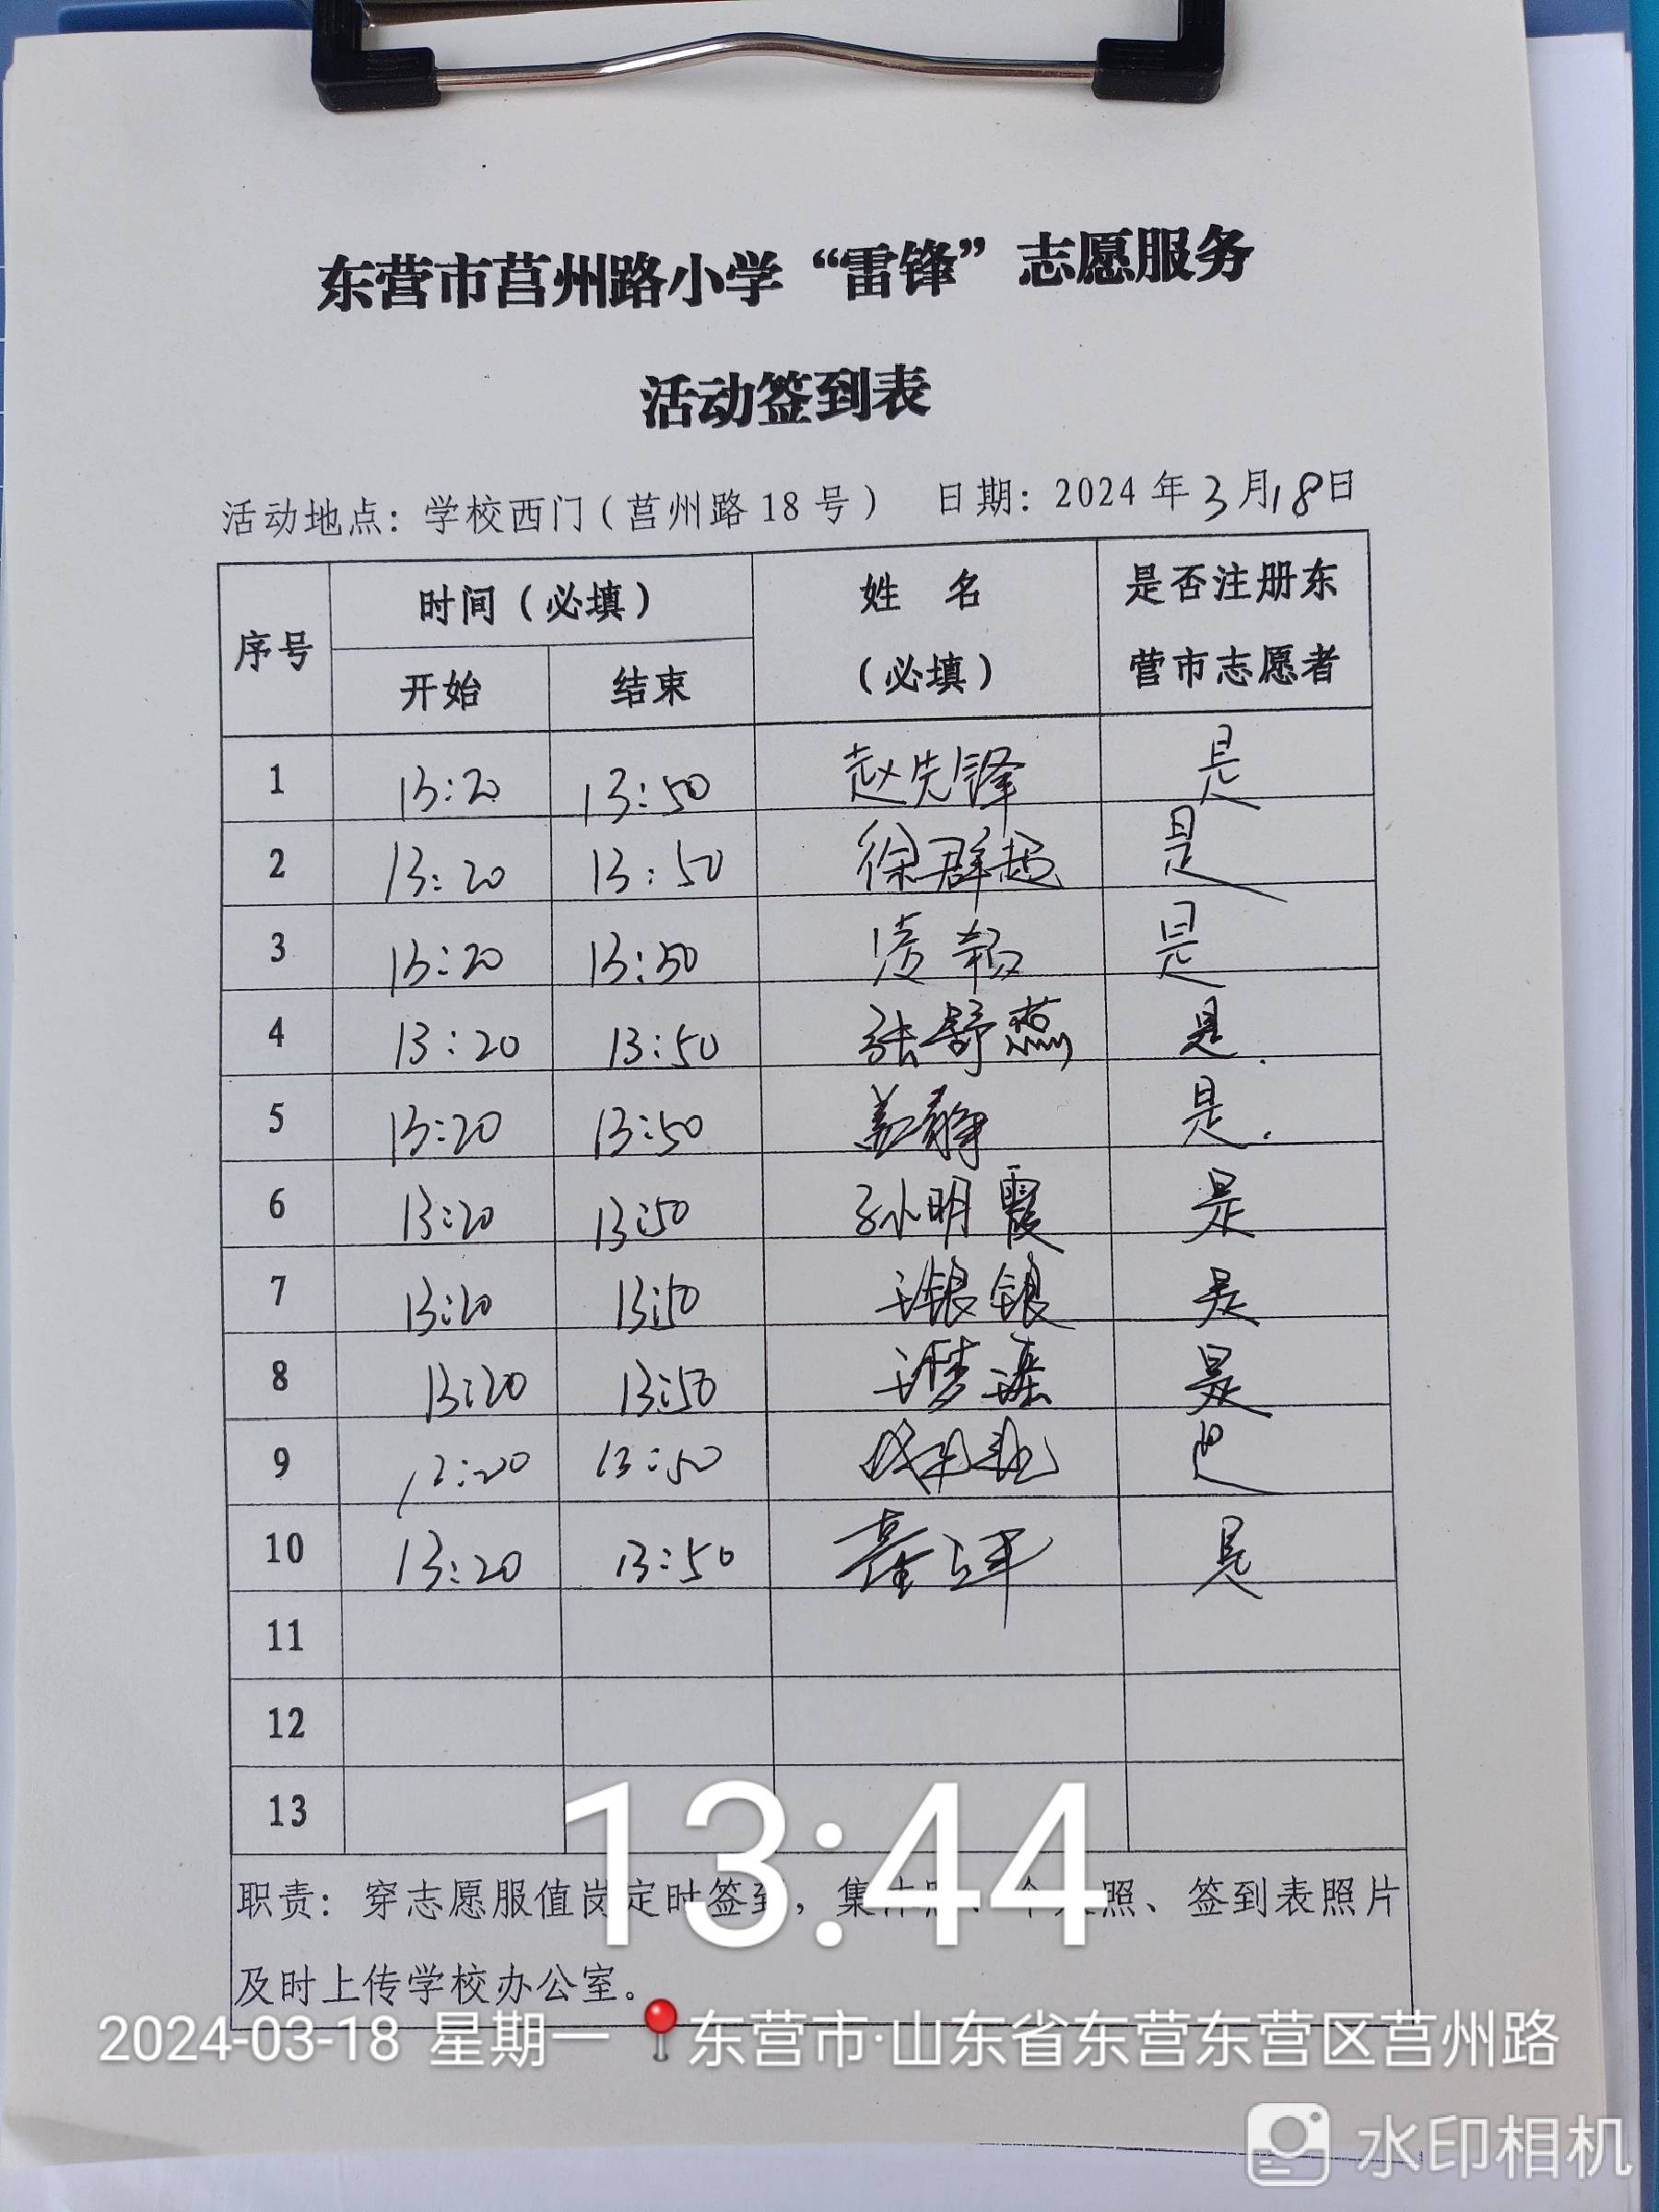 东营市莒州路小学“雷锋”志愿服务
活动签到表
活动地点：学校西门（莒州路18号） 日期：2024年3月18日
序号 时间（必填） 姓 名（必填） 是否注册东营市志愿者
开始 结束
1 13:20 13:50 赵先锋 是
2 13:20 13:50 徐群超 是
3 13:20 13:50 是
4 13:20 13:50 张舒燕 是.
5 13:20 13:50 姜静 是.
6 13:20 13:50 孙明霞 是
7 13:20 13:50 王银银 是
8 13:20 13:50 王梦瑶 是
9 13:20 13:50 是
10 13:20 13:50 是
11
12
13
13:44
职责：穿志愿服值岗定时签到，集 照、签到表照片
及时上传学校办公室。
2024-03-18 星期一 东营市·山东省东营东营区莒州路
水印相机